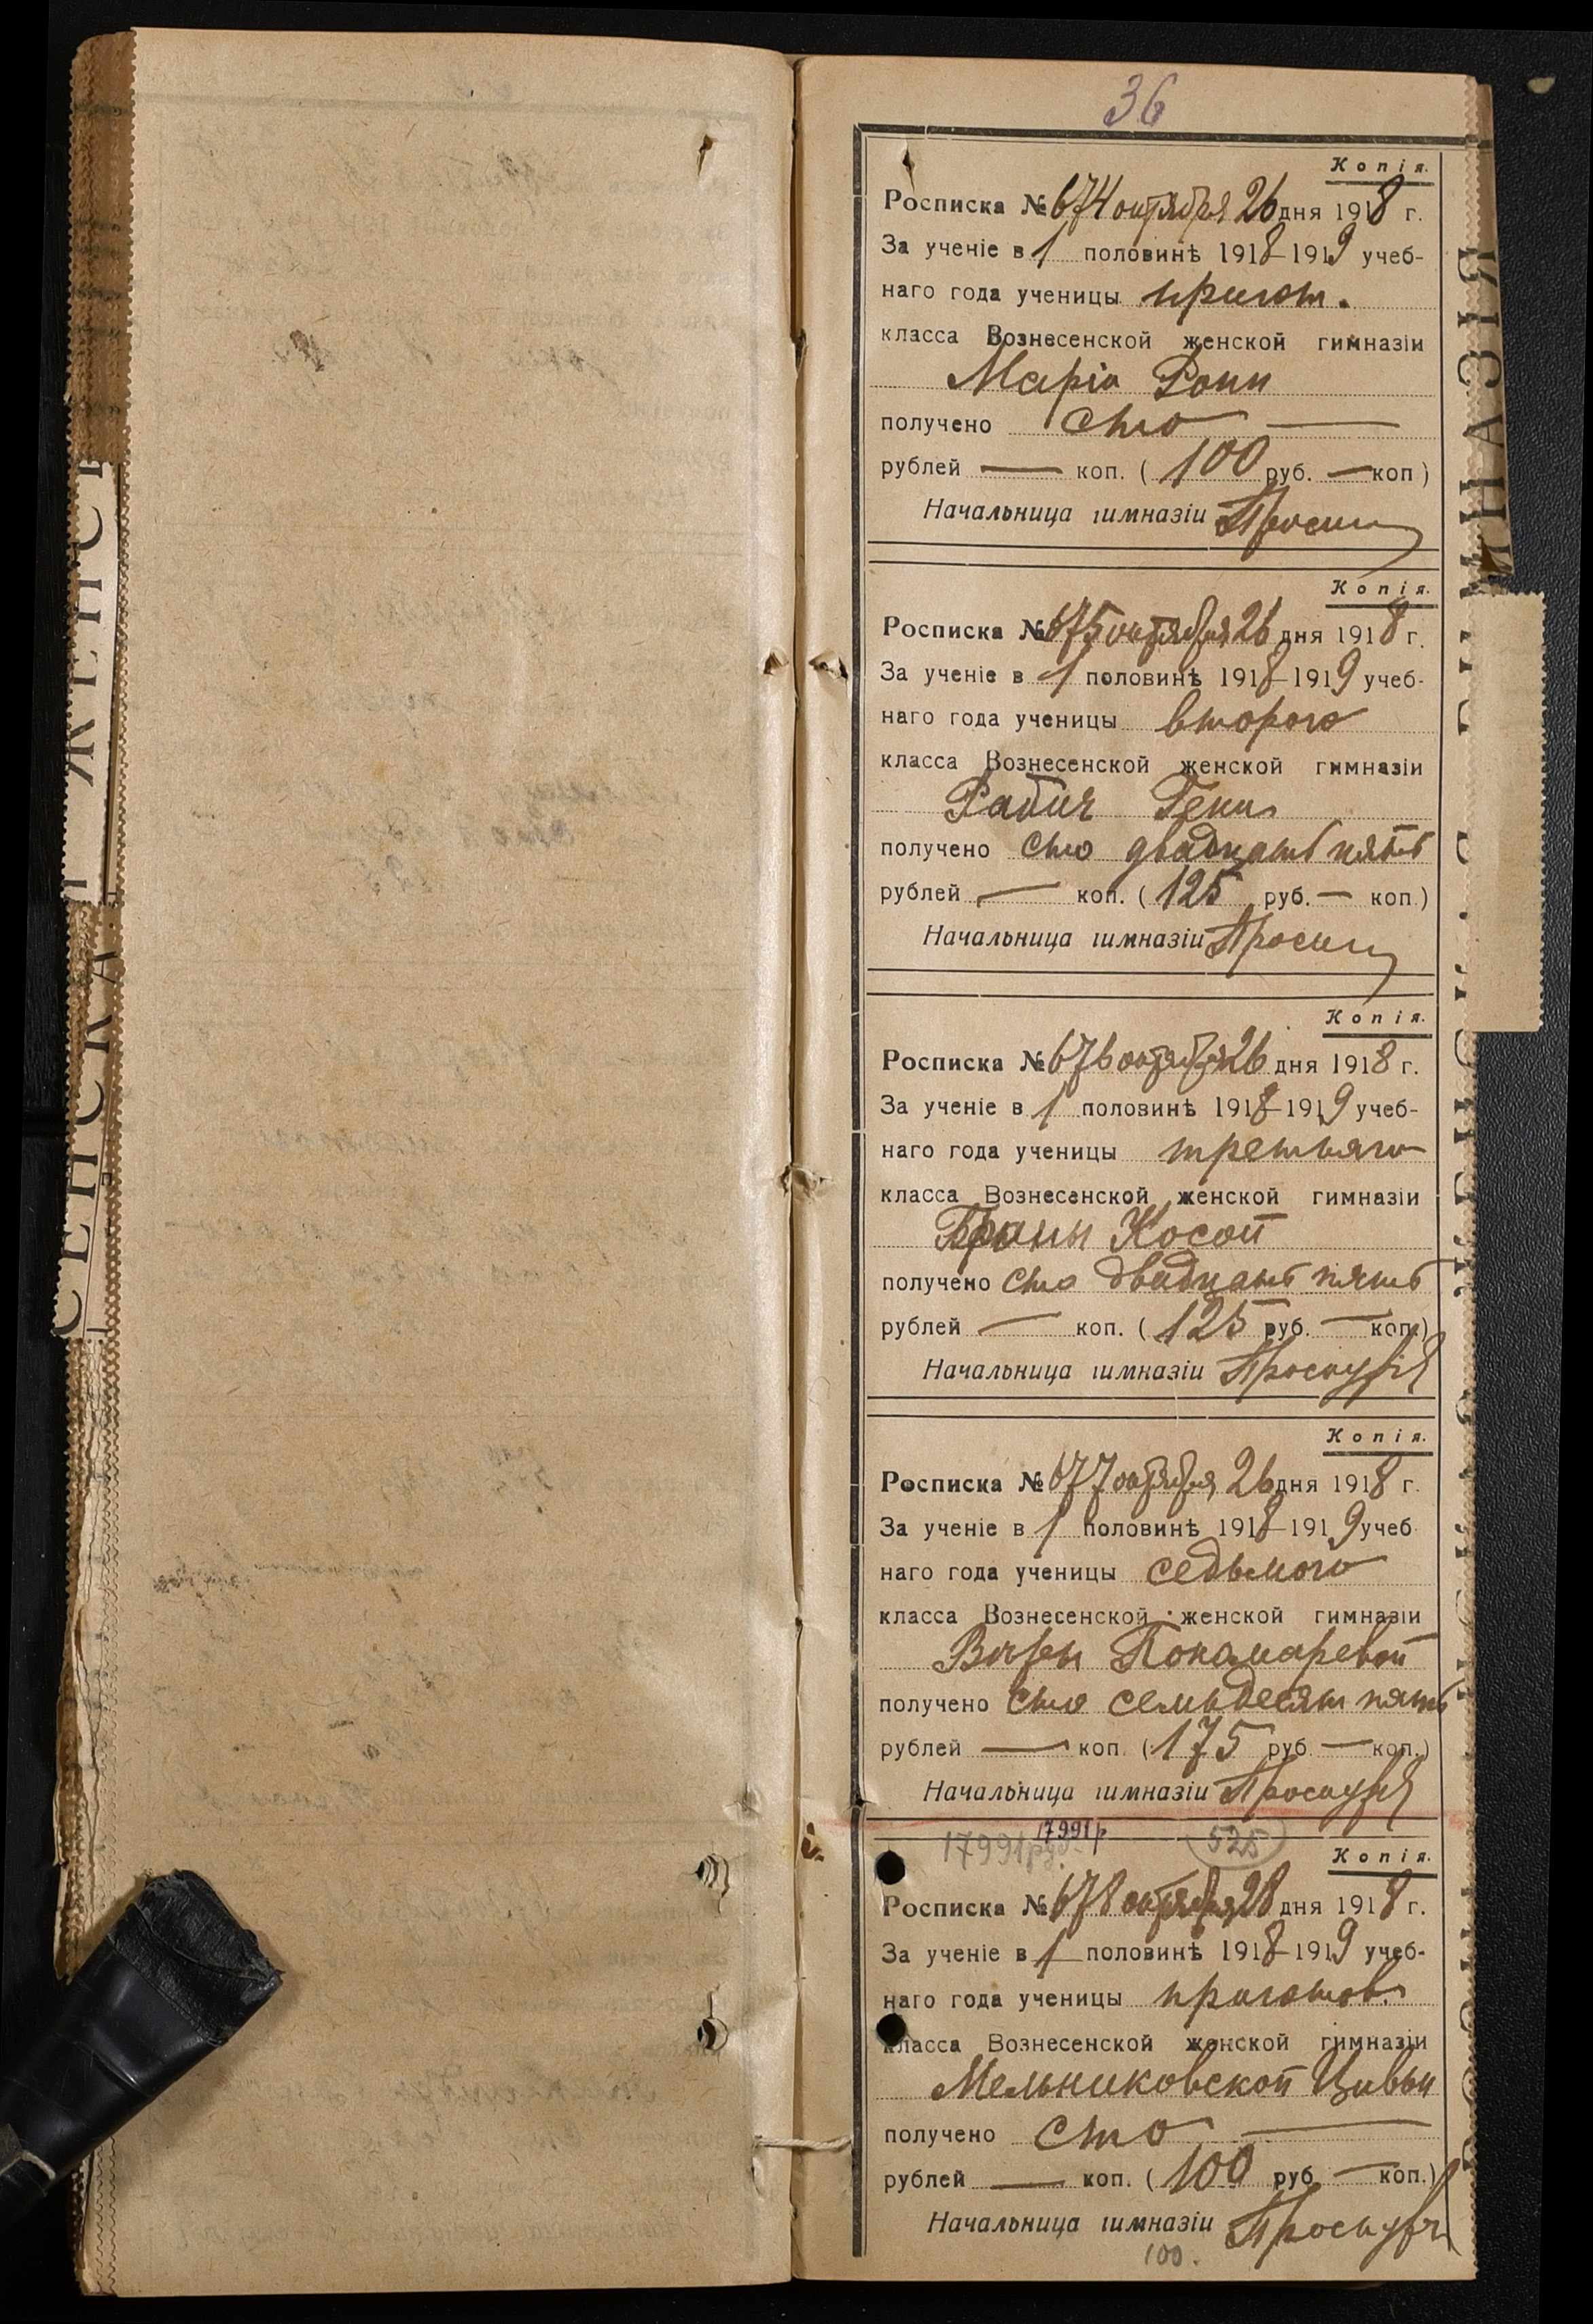 36
Копія.
Росписка № 674 октября 26 дня 1918 г.
За ученіе в 1 половинѣ 1918-1919 учеб-
наго года ученицы пригот.
класса Вознесенской женской гимназіи
Марія
получено сто —
рублей — коп. (100 руб. — коп)
Начальница гимназіи
Копія.
Росписка № 675 октября 26 дня 1918 г.
За ученіе в 1 половинѣ 1918-1919 учеб-
наго года ученицы второго
класса Вознесенской женской гимназіи
Рабич Гени
получено сто двадцать пять
рублей — коп. (125 руб. — коп.)
Начальница гимназіи
Копія.
Росписка № 676 октября 26 дня 1918 г.
За ученіе в 1 половинѣ 1918-1919 учеб-
наго года ученицы третьяго
класса Вознесенской женской гимназіи
Косой
получено сто двадцать пять
рублей — коп. (125 руб. — коп.)
Начальница гимназіи
Копія.
Росписка № 677 октября 26 дня 1918 г.
За ученіе в 1 половинѣ 1918-1919 учеб
наго года ученицы седьмого
класса Вознесенской женской гимназіи
Вѣры Покамаревой
получено сто семьдесят пять
рублей — коп. (175 руб. — коп.)
Начальница гимназіи
17991 руб. 17991 р 525
Копія.
Росписка № 678 октября 28 дня 1918 г.
За ученіе в 1 половинѣ 1918-1919 учеб-
наго года ученицы приготов.
класса Вознесенской женской гимназіи
Мельниковской Цивьи
получено сто —
рублей — коп. (100 руб — коп.)
Начальница гимназіи
100.